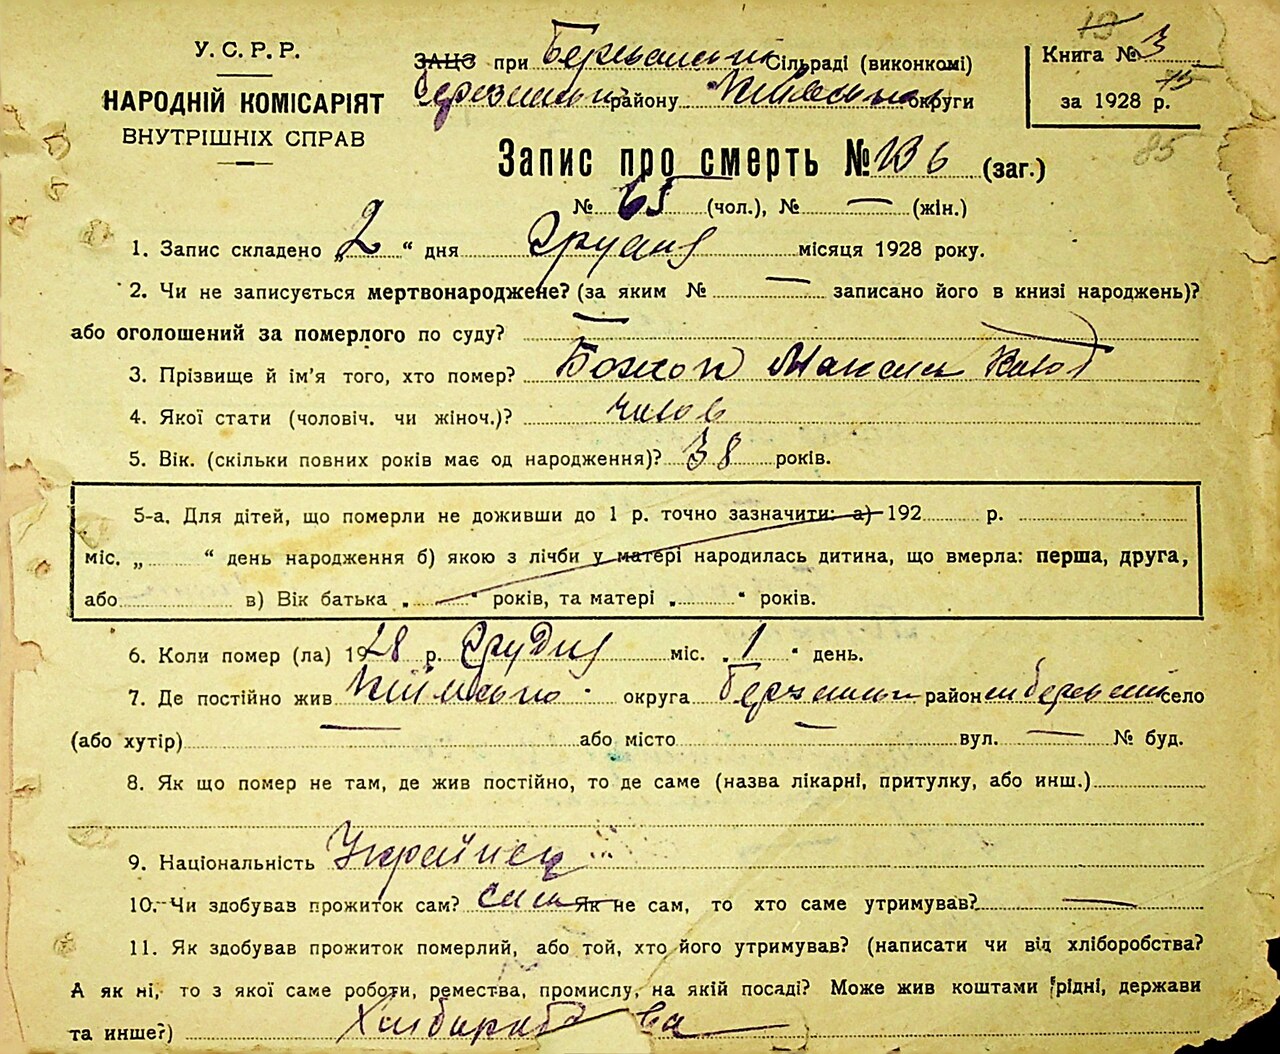 У. С. Р. Р.
НАРОДНІЙ КОМІСАРІЯТ
ВНУТРІШНІХ СПРАВ
ЗАЦС при Сільраді (виконкомі)
району округи
Книга № 3
за 1928 р.
75
85
Запис про смерть № 136 (заг.)
№ 65 (чол.), № — (жін.)
1. Запис складено „2“ дня Грудня місяця 1928 року.
2. Чи не записується мертвонароджене? (за яким № — записано його в книзі народжень)?
або оголошений за померлого по суду? —
3. Прізвище й ім'я того, хто помер? Божок Максим
4. Якої стати (чоловіч. чи жіноч.)? чолов
5. Вік. (скільки повних років має од народження)? 38 років.
5-а. Для дітей, що померли не доживши до 1 р. точно зазначити: а) 192 р.
міс. „ “ день народження б) якою з лічби у матері народилась дитина, що вмерла: перша, друга,
або в) Вік батька „ “ років, та матері „ “ років.
6. Коли помер (ла) 1928 р. Грудня міс. „1“ день.
7. Де постійно жив округа район село
(або хутір) — або місто — вул. — № буд.
8. Як що помер не там, де жив постійно, то де саме (назва лікарні, притулку, або инш.)
9. Національність Українец
10. Чи здобував прожиток сам? сам Як не сам, то хто саме утримував? —
11. Як здобував прожиток померлий, або той, хто його утримував? (написати чи від хліборобства?
А як ні, то з якої саме роботи, ремества, промислу, на якій посаді? Може жив коштами рідні, держави
та инше?) Хліборобства